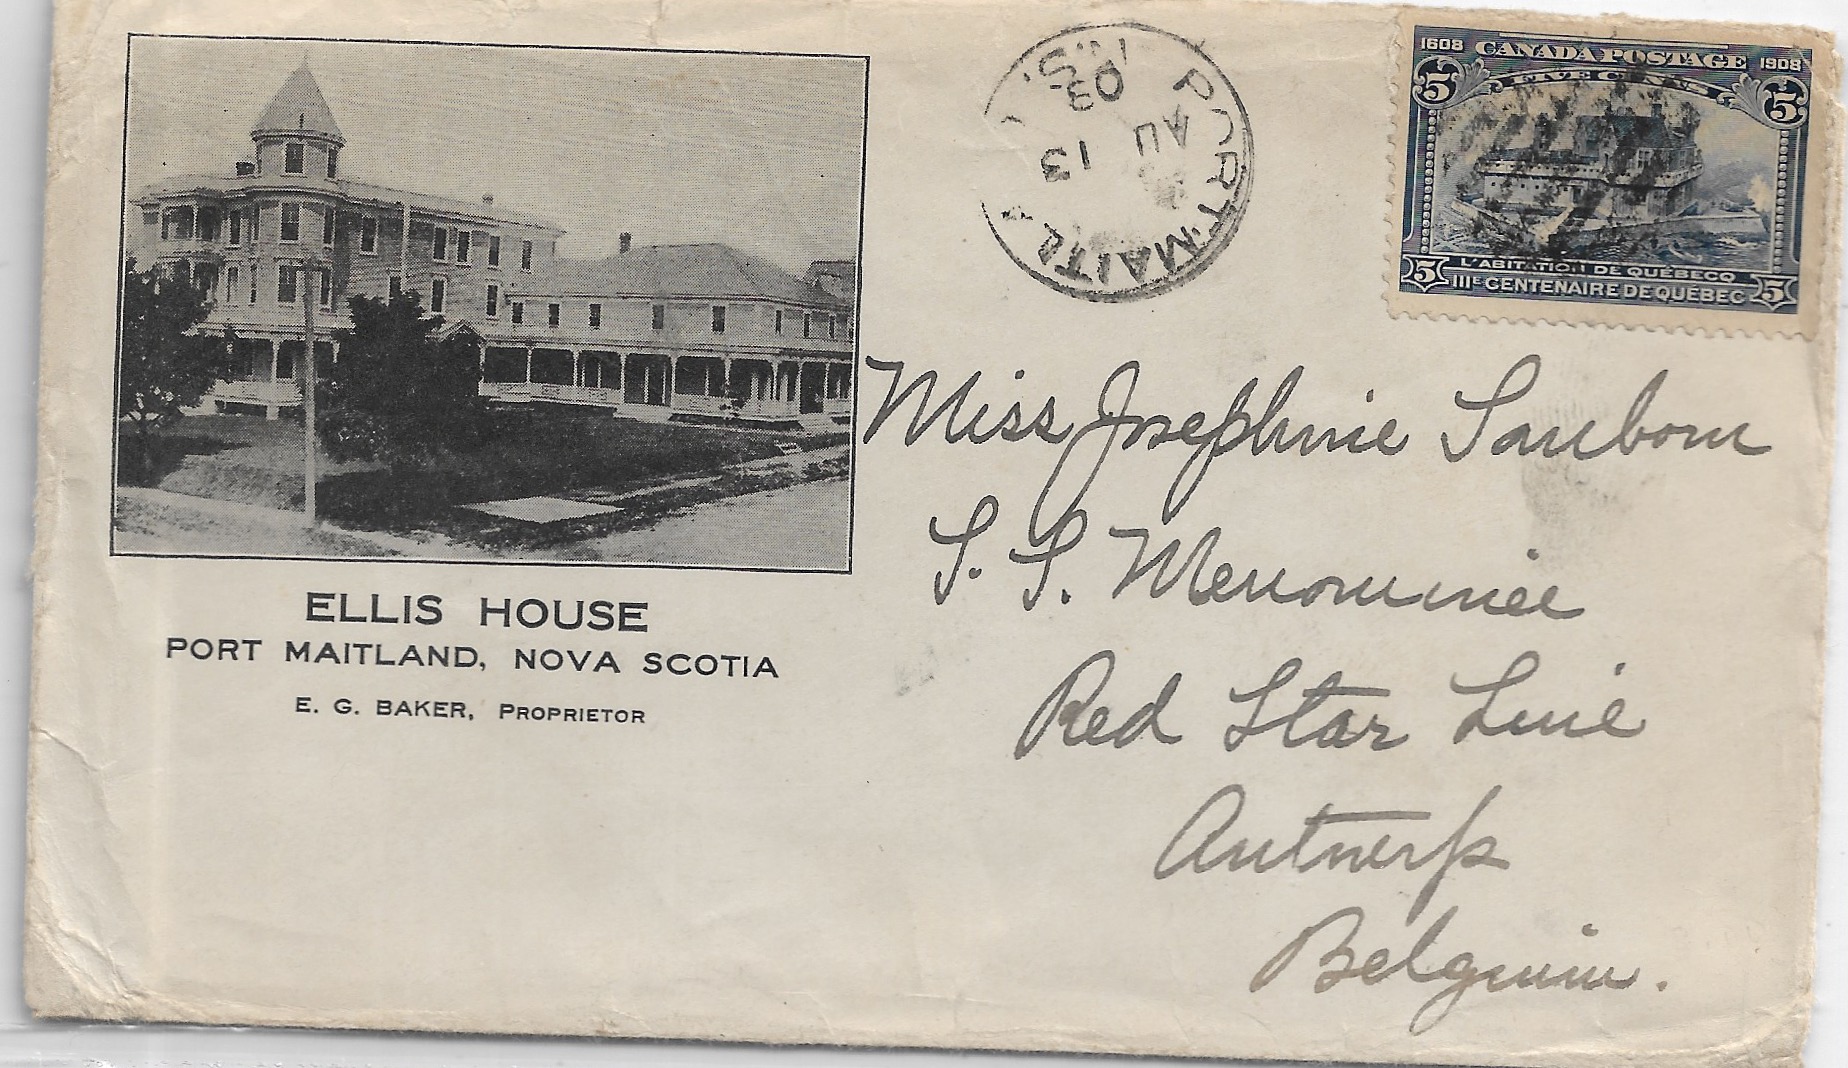 ELLIS HOUSE
PORT MAITLAND, NOVA SCOTIA
E. G. BAKER, PROPRIETOR
PORT MAITL
N.S.
AU 13
1608 CANADA POSTAGE 1908
5 FIVE CENTS 5
L'ABITATION DE QUÉBECQ
5 IIIE CENTENAIRE DE QUÉBEC 5
Miss Josephine Sanborn
S. S. Menominee
Red Star Line
Antwerp
Belgium.